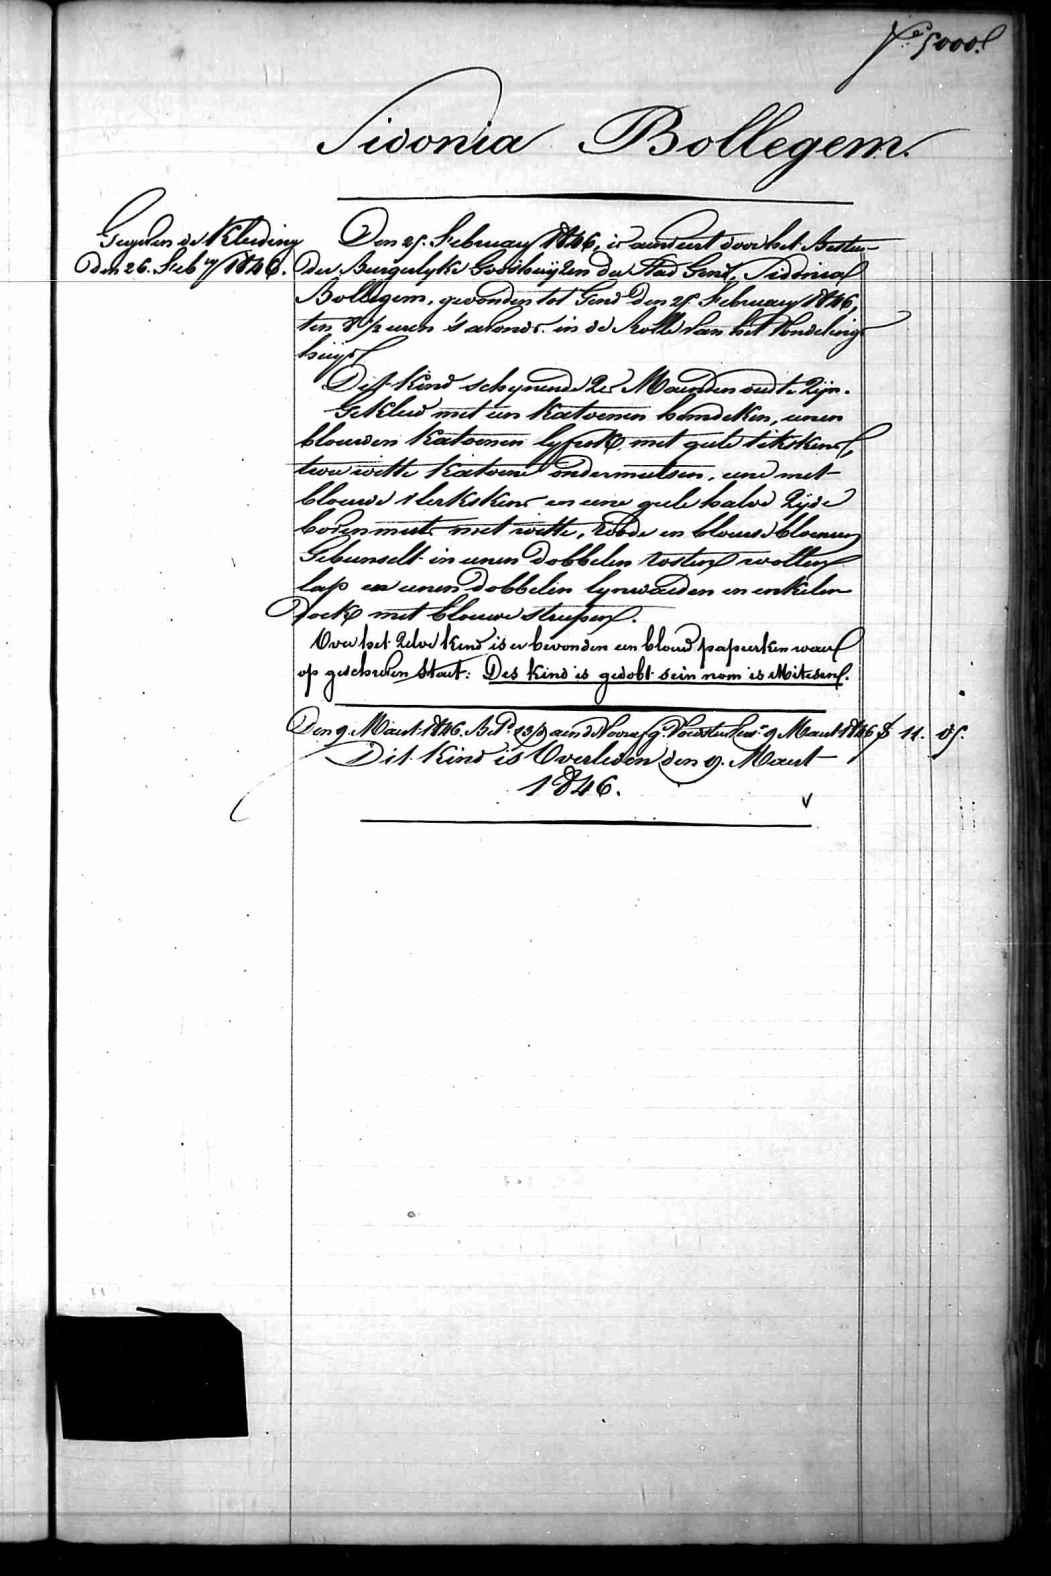 Fo. 5000.
Sidonia Bollegem.
Gegeven de Kleeding
den 26. Feb.ry 1846.
Den 25. February 1846, is aenveert door het Bestier
der Burgerlyke Godshuyzen der Stad Gend, Sidonia
Bollegem, gevonden tot Gend den 25 February 1846,
ten 8 1/2 uren 's avonds. in de Rolle van het Vondeling-
huys
Dit Kind schynende 2 Maenden oud te Zijn.
Gekleed met een Katoenen hemdeken, eenen
blauwen Katoenen lyfrok met gele titskens,
twee witte Katoene ondermutsen, eene met
blauwe vlerkskens en eene gele halve Zyde
bovenmuts met witte, roode en blauwe bloemen
Gebunselt in eenen dobbelen rosten wollen
lap en eenen dobbelen lynwaeden en enkelen
dock met blauwe streepen.
Over het Zelve kind is er bevonden een blauw papierken waer
op geschreven Staet: Des kind is gedobt sein nom is Mitesen.
Den 9 Maert 1846. Bet.d aen de Voorsg. Voedster 9 Maert 1846 f 11. 05.
Dit Kind is Overleden den 9. Maert
1846.